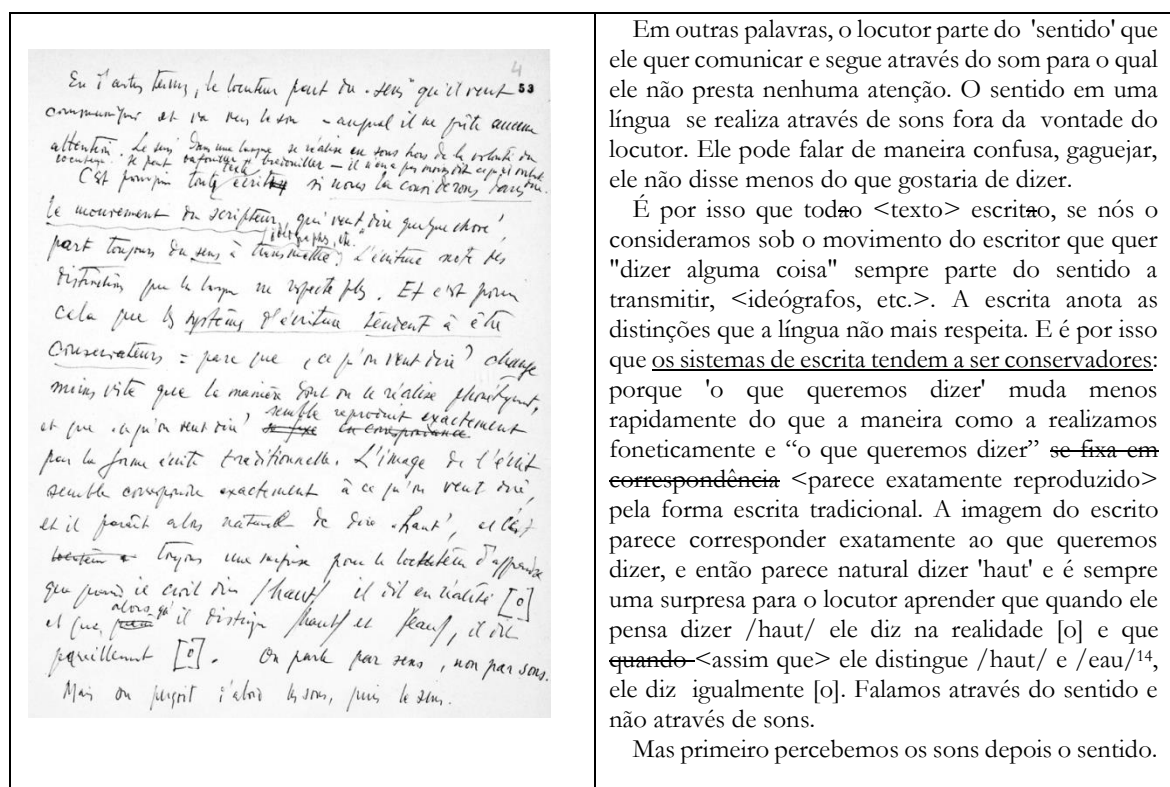 4
53
En d'autres termes, le locuteur part du "sens" qu'il veut
communiquer et va vers le son – auquel il ne prête aucune
attention. Le sens dans une langue se réalise en sons hors de la volonté du
locuteur. Il peut bafouiller, bredouiller — il n'en a pas moins dit ce qu'il voulait dire.
C'est pourquoi tout texte écrit si nous la considérons dans
le mouvement du scripteur, qui veut dire quelque chose,
part toujours du sens à transmettre (idéographes, etc. L'écriture note des
distinctions que la langue ne respecte plus. Et c'est pour
cela que les systèmes d'écriture tendent à être
conservateurs = parce que "ce qu'on veut dire" change
moins vite que la manière dont on le réalise phonétiquement,
et que "ce qu'on veut dire" se fixe en correspondance semble reproduit exactement
par la forme écrite traditionnelle. L'image de l'écrit
semble correspondre exactement à ce qu'on veut dire,
et il paraît alors naturel de dire "haut", et c'est
toujours une surprise pour le locuteur d'apprendre
que quand il croit dire /haut/ il dit en réalité [o]
et que quand alors qu'il distingue /haut/ et /eau/, il dit
pareillement [o]. On parle par sens, non par sons.
Mais on perçoit d'abord les sons, puis le sens.
Em outras palavras, o locutor parte do 'sentido' que
ele quer comunicar e segue através do som para o qual
ele não presta nenhuma atenção. O sentido em uma
língua se realiza através de sons fora da vontade do
locutor. Ele pode falar de maneira confusa, gaguejar,
ele não disse menos do que gostaria de dizer.
É por isso que todao <texto> escritao, se nós o
consideramos sob o movimento do escritor que quer
"dizer alguma coisa" sempre parte do sentido a
transmitir, <ideógrafos, etc.>. A escrita anota as
distinções que a língua não mais respeita. E é por isso
que os sistemas de escrita tendem a ser conservadores:
porque 'o que queremos dizer' muda menos
rapidamente do que a maneira como a realizamos
foneticamente e “o que queremos dizer” se fixa em
correspondência <parece exatamente reproduzido>
pela forma escrita tradicional. A imagem do escrito
parece corresponder exatamente ao que queremos
dizer, e então parece natural dizer 'haut' e é sempre
uma surpresa para o locutor aprender que quando ele
pensa dizer /haut/ ele diz na realidade [o] e que
quando <assim que> ele distingue /haut/ e /eau/14,
ele diz igualmente [o]. Falamos através do sentido e
não através de sons.
Mas primeiro percebemos os sons depois o sentido.